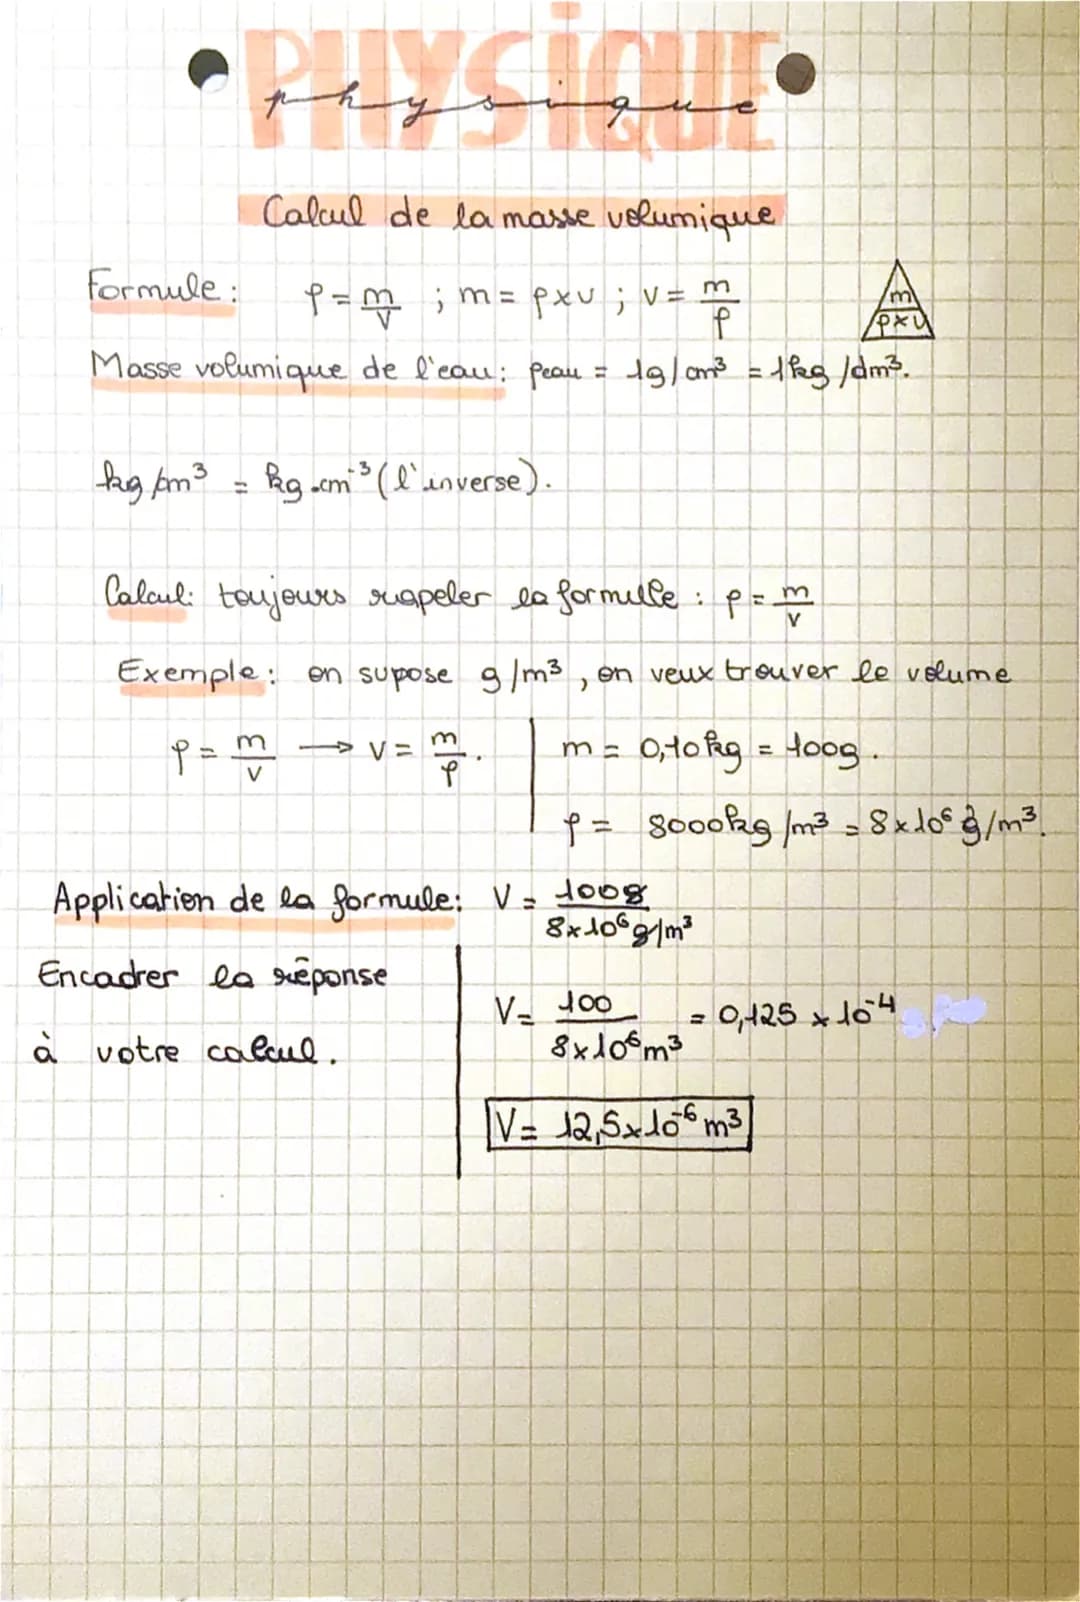 PHYSIQUE
physique
Calcul de la masse volumique
Formule : ρ = m/V ; m = ρxv ; v = m/ρ
m
ρxv
Masse volumique de l'eau : ρeau = 1g/cm³ = 1kg/dm³.
kg/cm³ = kg.cm⁻³ (l'inverse).
Calcul: toujours rapeler la formulle : ρ = m/v
Exemple : on supose g/m³, on veux trouver le volume
ρ = m/v → v = m/ρ.
m = 0,10kg = 100g.
ρ = 8000kg/m³ = 8x10⁶ g/m³.
Application de la formule: V = 100g/8x10⁶g/m³
Encadrer la réponse
à votre calcul.
V = 100/8x10⁶m³ = 0,125 x 10⁻⁴
V = 12,5x10⁻⁶ m³